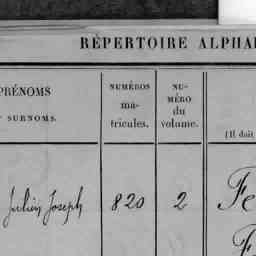 RÉPERTOIRE ALPHA
PRÉNOMS
SURNOMS.
NUMÉROS
ma-
tricules.
NU-
MÉRO
du
volume.
(Il doit
Julien Joseph 820 2 Fe